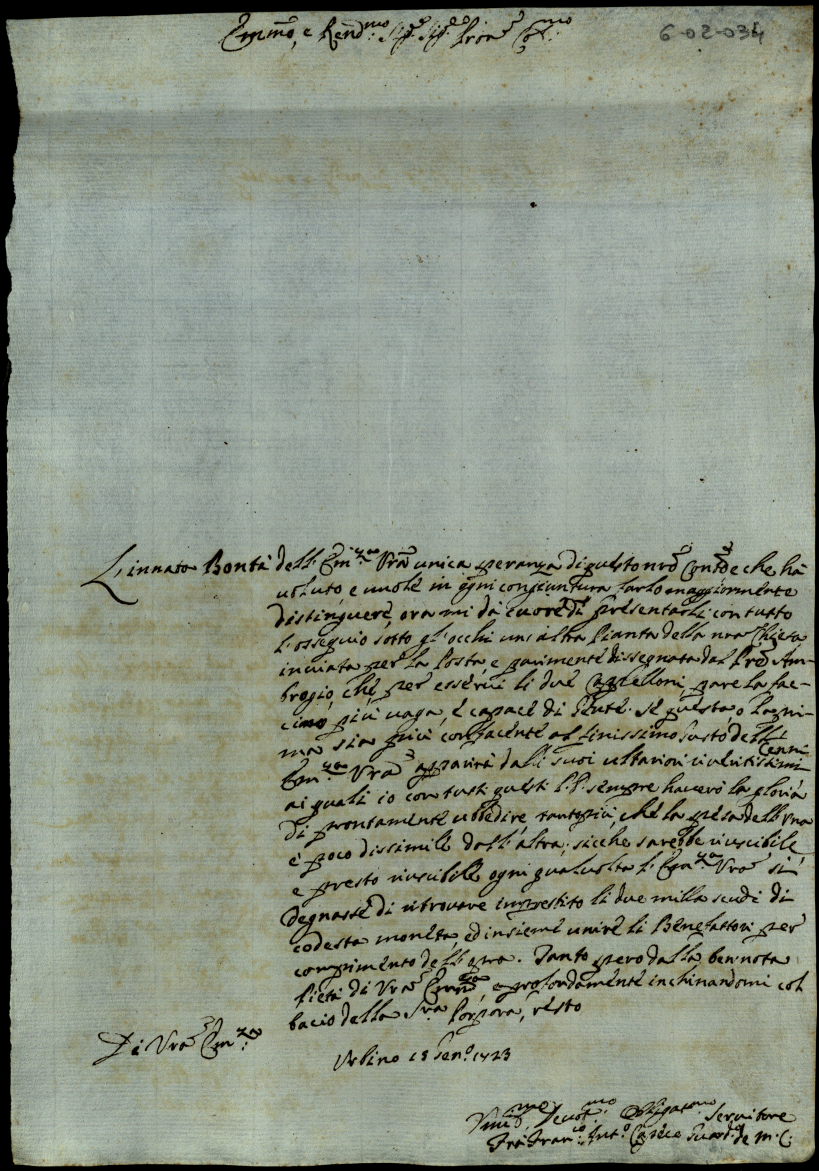 Em̃mo, e Rend:mo Sig:re Sig:re Pron:e Col:mo
6-02-034
L'innata Bontà dell'Em:za Vra unica speranza di questo nrõ Conto e che hà
voluto, e vuole in ogni congiuntura farlo maggiormente
distinguere, ora mi dà cuore di presentarli con tutto
l'ossequio sotto gl'occhi un'altra Pianta della nra Chiesa
inviata per la Posta, e parimente dissegnata dal Pre Am-
brogio, che per esservi li due Cappelloni, pare la fac-
cino più vaga, e capace di Gente. Se questa, o la pri-
ma sia più confacente al finissimo Gusto dell'
Em:za Vra apparirà dalli suoi ulteriori riveritissimi Cenni
ai quali io con tutti questi PP. sempre haverò la gloria
di prontamente ubbedire, tantopiù, che la spesa dell'una
è poco dissimile dall'altra; sicche sarebbe riuscibile
e presto riuscibile ogni qualvolta l'Em:za Vra si
degnasse di ritrovare imprestito li due milla scudi di
codesta moneta, ed insieme unire li Benefattori per
compimento dell'opra. Tanto spero dalla ben nota
Pietà di Vra Em:za, e profondamente inchinandomi col
bacio della Sra Porpora, resto
Di Vra Em:za
Urbino 18 Gen:o 1723
Umil:mo Devot:mo Obligatmo Servitore
Fra Fran:co Ant:o Guard:o de M. C.